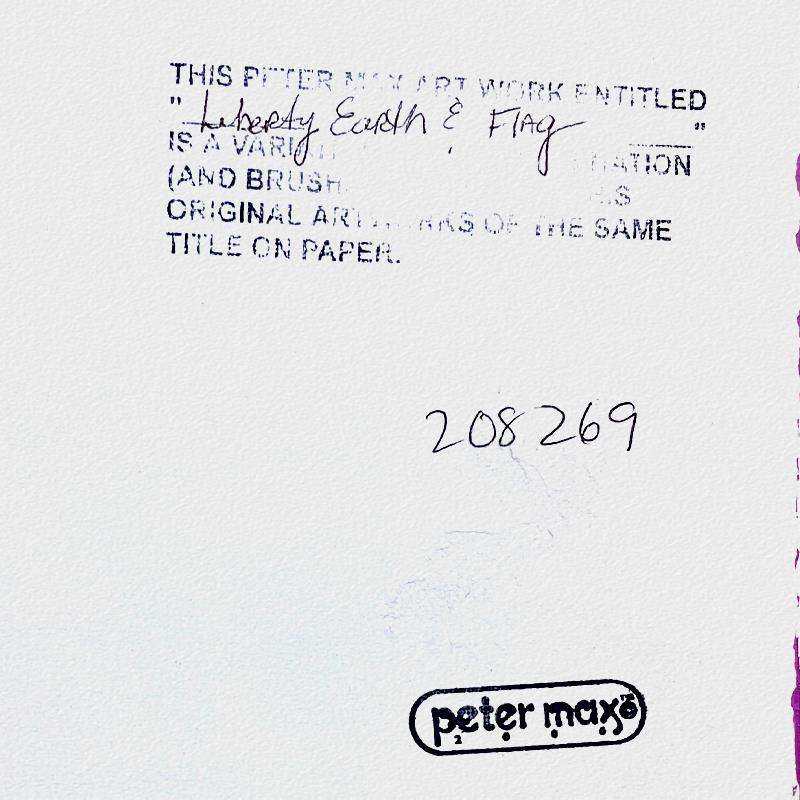 THIS PETER MAX ART WORK ENTITLED
" Liberty Earth & Flag "
IS A
(AND BRUSH
ORIGINAL OF THE SAME
TITLE ON PAPER.
208269
peter max